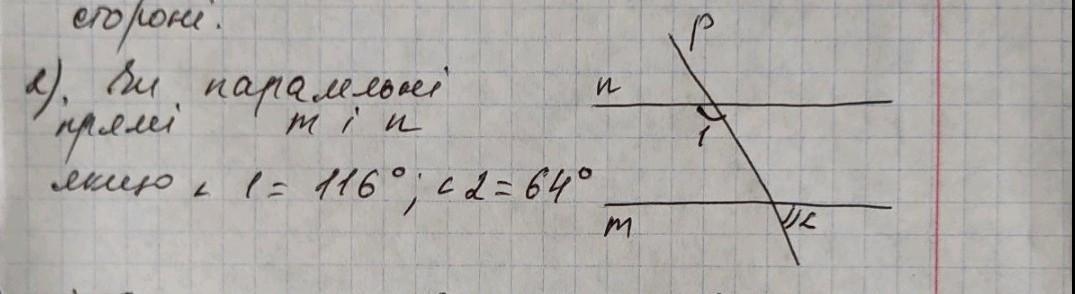 стороні.
2). Чи паралельні
прямі m і n
якщо ∠ 1 = 116°; ∠2 = 64°
p
n
1
m
2